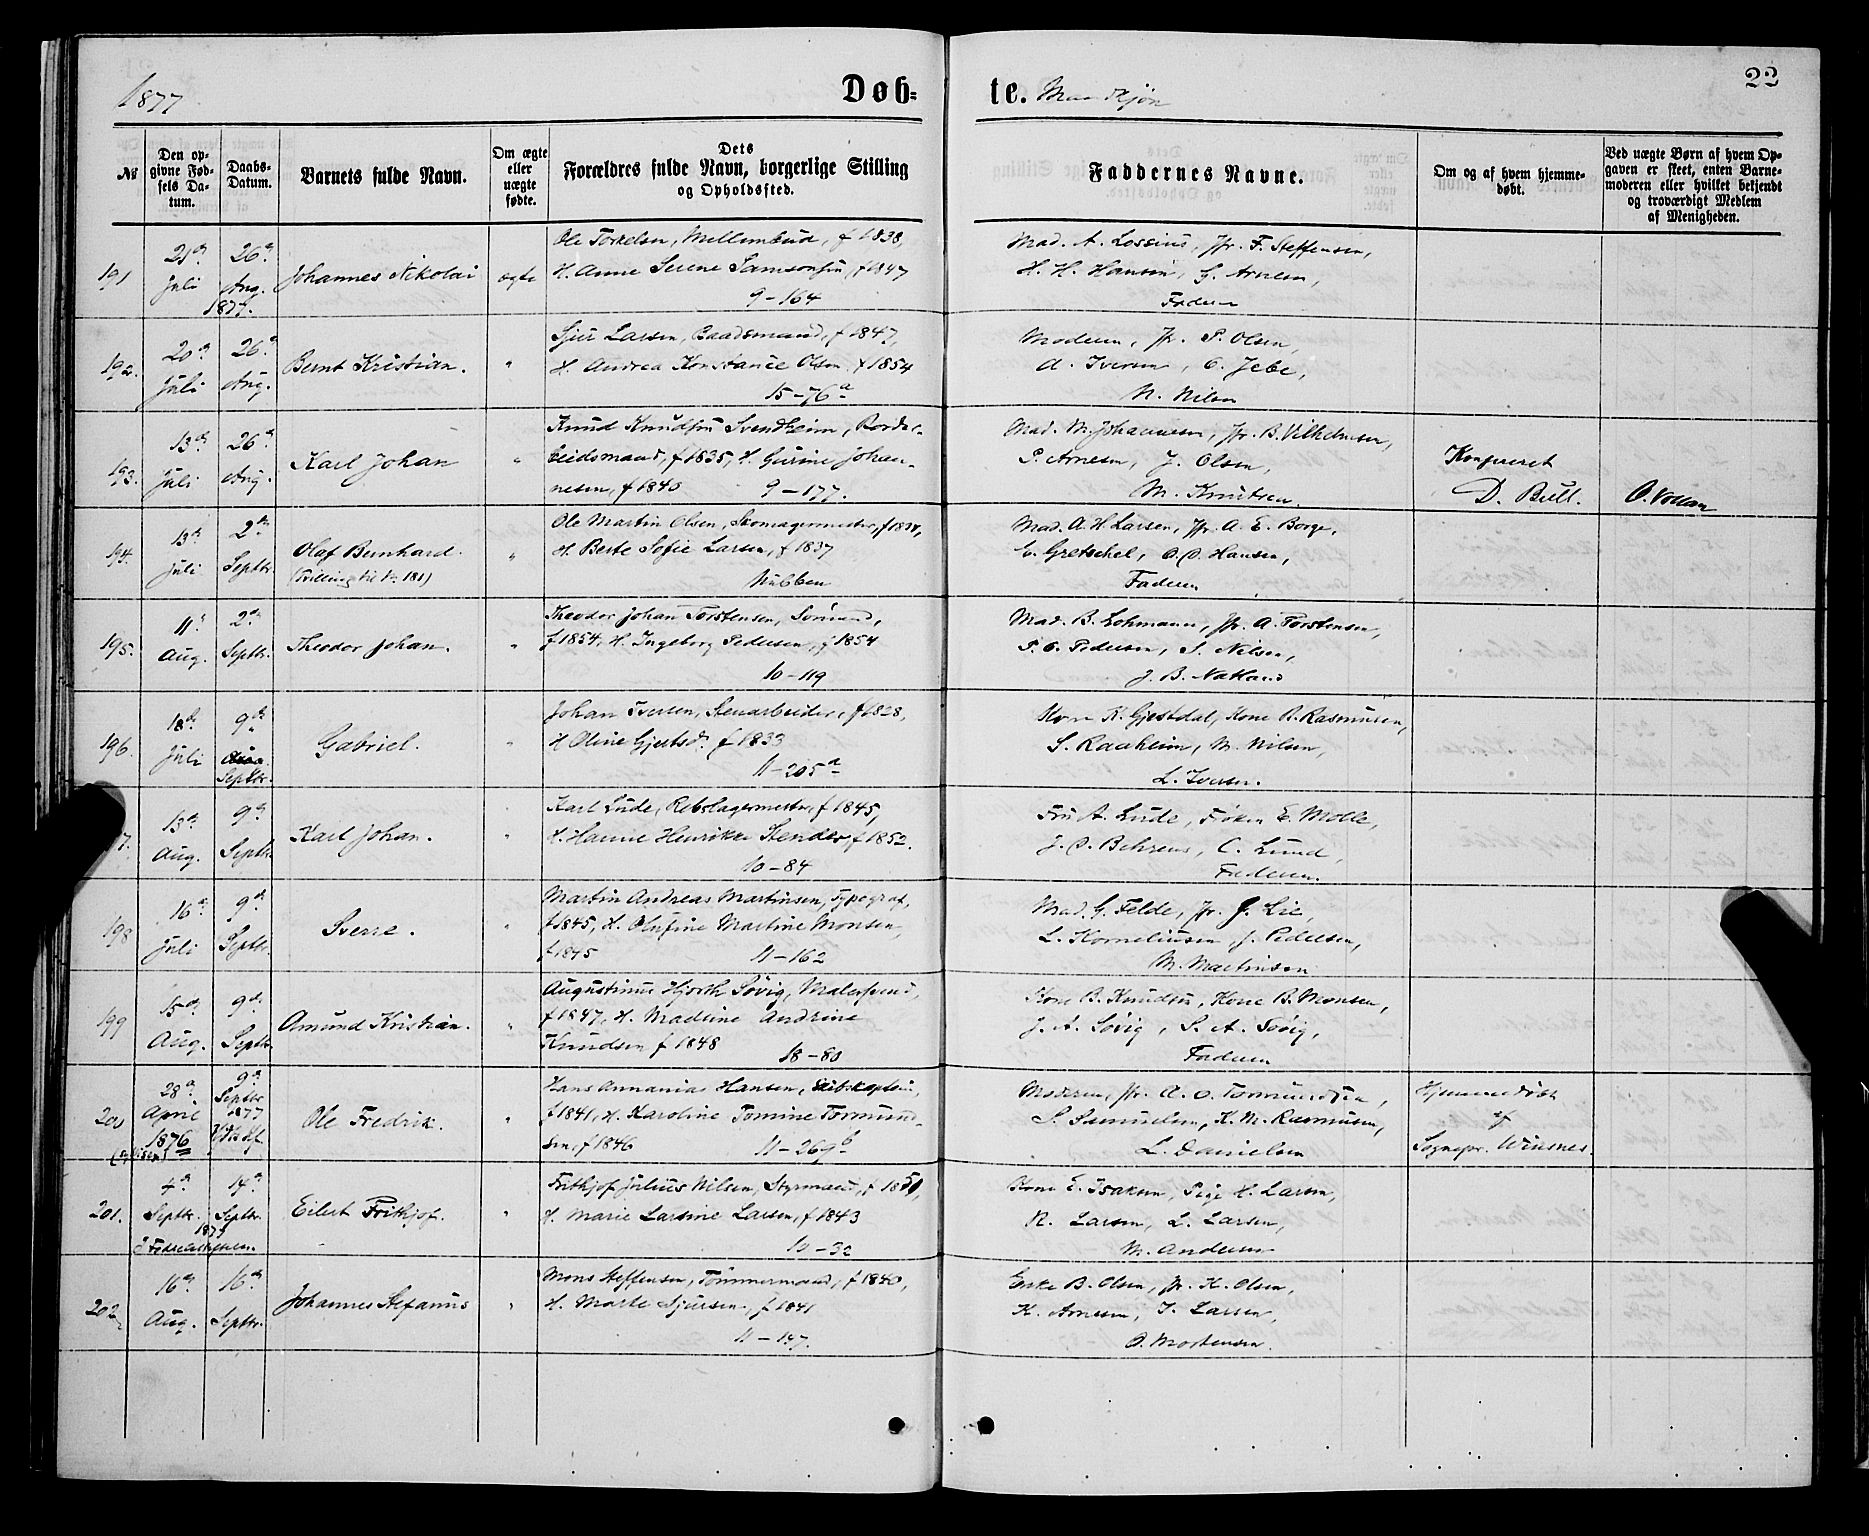 1877
Døb-
te. Mandkjøn
22
№
Den op-
givne Fød-
sels Da-
tum.
Daabs-
Datum.
Barnets fulde Navn.
Om ægte
eller
uægte
fødte.
Dets
Forældres fulde Navn, borgerlige Stilling
og Opholdssted.
Faddernes Navne.
Om og af hvem hjemme-
døbt.
Ved uægte Børn af hvem Op-
gaven er skeet, enten Barne-
moderen eller hvilket bekjendt
og troværdigt Medlem
af Menigheden.
191
21de
Juli
26de
Aug.
1877.
Johannes Nikolai
ægte
Ole Torkelsen, Mellembud, f 1838,
H. Anne Serene Samsonsen, f 1847
9-164
Mad. A. Lossius, Jfr. F. Steffensen,
H. H. Hansen, G. Arnesen,
Faderen
192.
20de
Juli
26de
Aug.
Bernt Kristian.
"
Sjur Larsen, Baadsmand, f 1847,
H. Andrea Konstance Olsen f 1854
15-76a
Moderen, Jfr. P. Olsen,
A. Iversen, O. Jebe,
N. Nilsen
193.
13de
Juli
26de
Aug.
Karl Johan
"
Knud Knudsen Svendheim, Bordar-
beidsmand, f 1835, H. Gurine Johan-
nesen, f 1840 9-177.
Mad. M. Johannesen, Jfr. B. Vilhelmsen,
P. Arnesen, J. Olsen,
M. Knutsen.
Konfereret
D. Bull.
O. Vollan
194.
13de
Juli
2den
Septbr.
Olaf Bernhard.
(Tvilling til No 181)
"
Ole Martin Olsen, Skomagermester, f 1834,
H. Berte Sofie Larsen, f 1837
Nubben
Mad. A. H. Larsen, Jfr. A. E. Borge,
E. Gretschel, O. O. Hansen,
Faderen
195.
11te
Aug.
2den
Septbr.
Theodor Johan.
"
Theodor Johan Torstensen, Sømand,
f 1854, H. Ingeborg Pedersen, f 1854
10-119
Mad. B. Lohmann, Jfr. A. Torstensen,
P. O. Pedersen, S. Nilsen,
J. B. Natland
196.
18de
Juli
9de
Septbr.
Gabriel.
"
Johan Iversen, Stenarbeider, f 1828,
H Oline Gjertsd. f 1833
11-205a
Kone K. Gjestdal, Kone B. Rasmusen,
S. Raaheim, M. Nilsen,
L. Iversen.
7.
13de
Aug.
9de
Septbr.
Karl Johan.
"
Karl Lude, Rebslagermester, f 1845,
H. Hanne Henrikke Stender, f 1852.
10-84
Fru A. Lude, Frøken E. Molle,
J. O. Behrens, C. Lund,
Faderen.
198
16de
Juli
9de
Septbr.
Sverre.
"
Martin Andreas Martinsen, Typograf,
f 1845, H. Olufine Martine Monsen,
f 1845 11-162
Mad. G. Felde, Jfr. J. Lie,
L. Korneliusen, J. Pedersen,
M. Martinsen
199
15de
Aug.
9de
Septbr.
Amund Kristian.
"
Augustinus Hjorth Søvig, Malersvend,
f 1847, H. Madsine Andrine
Knudsen f 1848 18-80
Kone B. Knudsen, Kone B. Monsen,
J. A. Søvig, S. A. Søvig,
Faderen
200
28de
April
1876
9de
Septbr
1877
Ole Fredrik.
"
Hans Annanias Hansen, Skibskaptein,
f 1841, H. Karoline Tomine Tormund-
sen, f 1846 11-269b
Moderen, Jfr. A. O. Tormundsen,
S. Samuelsen, K. M. Rasmusen,
L. Danielsen
Hjemmedøbt
af
Sognepr. Winsnes
201.
4de
Septbr.
14de
Septbr.
1877
Eilert Frithjof.
"
Frithjof Julius Nilsen, Styrmand, f 1851,
H. Marie Larsine Larsen, f 1843
10-32
Kone E. Isaksen, Pige H. Larsen,
R. Larsen, L. Larsen,
M. Andersen
202
16de
Aug.
16de
Septbr.
Johannes Stefanus
"
Mons Steffensen, Tømmermand, f 1840,
H. Marte Sjursen f 1841
11-147.
Enke B. Olsen, Jfr. K. Olsen,
K. Arnesen, I. Larsen,
O. Mortensen.